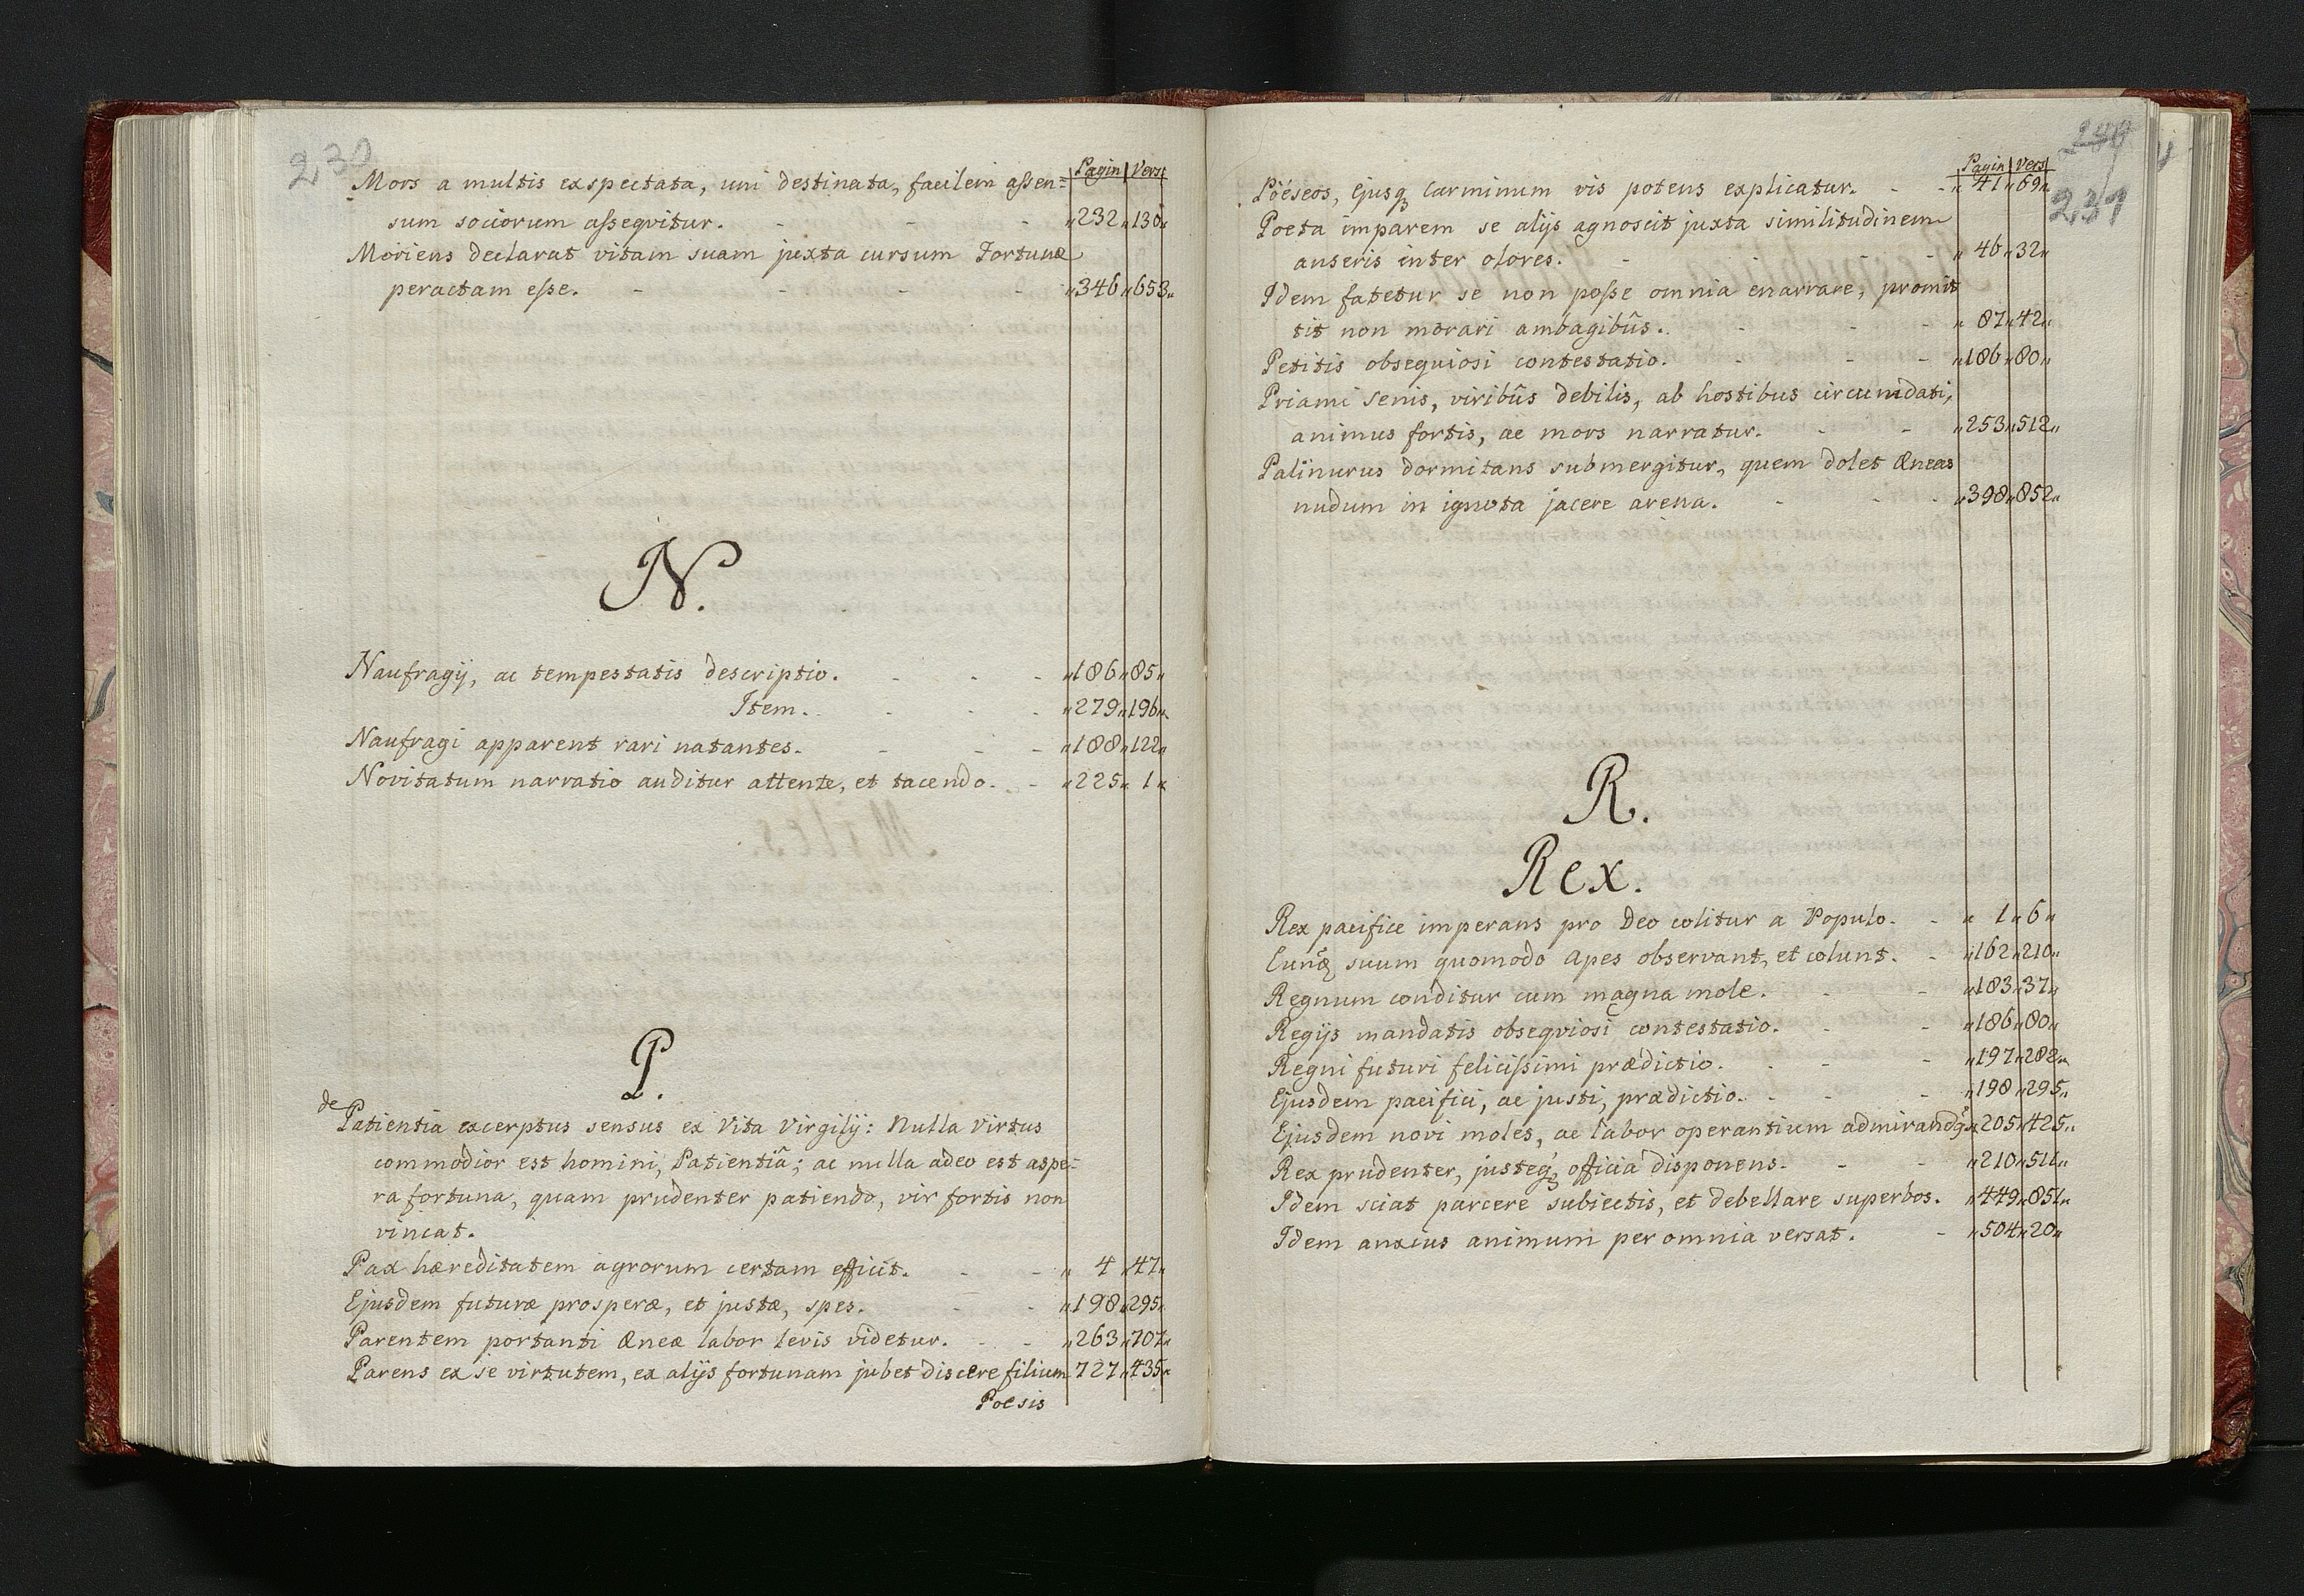 230
Pagin Vers
Mors a multis exspectata, uni destinata, facilem assen=
sum sociorum assequitur. - - - „232„130„
Moriens declarat vitam suam juxta cursum Fortunæ
peractam esse. - - - - „346„653„
N.
Naufragij, ac tempestatis descriptio. - - - „186„85„
Item. - - - „279„196„
Naufragi apparent rari natantes. - - - „188„122„
Novitatum narratio auditur attente, et tacendo. - „225„ 1„
P.
de Patientia excerptus sensus ex Vita Virgilij: Nulla Virtus
commodior est homini, Patientiâ; ac nulla adeo est aspe=
ra fortuna, quam prudenter patiendo, vir fortis non
vincat.
Pax hæreditatem agrorum certam efficit. - - „ 4„47„
Ejusdem futuræ prosperæ, et justæ, spes. - - „198„295„
Parentem portanti Æneæ labor levis videtur. - - „263„707„
Parens ex se virtutem, ex alijs fortunam jubet discere filium 727„435„
Poesis
231
Pagin Vers
Pöéseos, Ejusq; Carminum vis potens explicatur. - - „ 41„69„
Poeta imparem se alijs agnoscit juxta similitudinem
anseris inter olores. - - - „ 46„32„
Idem fatetur se non posse omnia enarrare, promit
tit non morari ambagibûs. - - - „ 87„42„
Petitis obsequiosi contestatio. - - - „186„80„
Priami Senis, viribûs debilis, ab hostibus circumdati,
animus fortis, ac mors narratur. - - „253„512„
Palinurus dormitans submergitur, quem dolet Æneas
nudum in ignota jacere arena. - - - „398„852„
R.
Rex.
Rex pacifice imperans pro Deo colitur a Populo. - „ 1„6„
Eunq; suum quomodo Apes observant, et colunt. - „162„210„
Regnum conditur cum magna mole. - - „183„37„
Regijs mandatis obseqviosi contestatio. - - „186„80„
Regni futuri felicissimi prædictio. - - - „197„282„
Ejusdem pacifici, ac justi, prædictio. - - - „198„295„
Ejusdem novi moles, ac labor operantium admirandq „205„425„
Rex prudenter, justeq; officia disponens. - - „210„511„
Idem sciat parcere subiectis, et debellare superbos. „449„851„
Idem anxius animum per omnia versat. - „504„20„